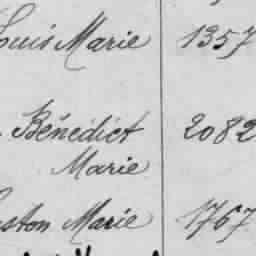 Louis Marie 1357
Bénédict 2082
Marie
Gaston Marie 1767